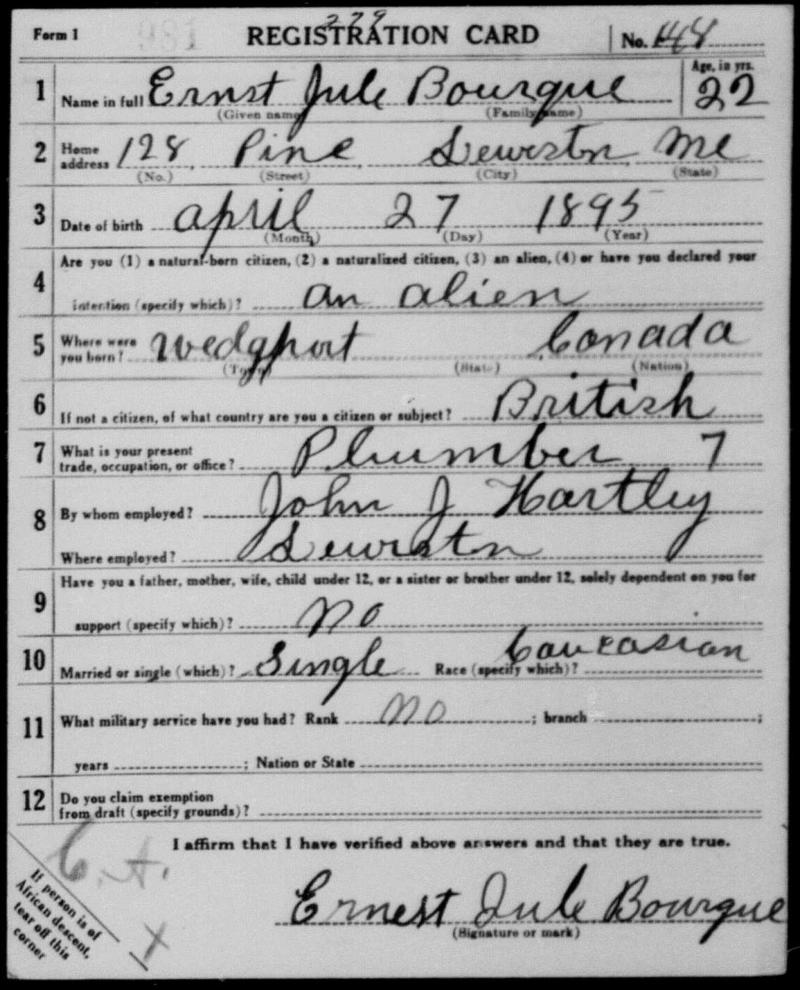 Form 1 REGISTRATION CARD 279 No. 148
1 Name in full Ernst Jule Bourque Age, in yrs. 22
(Given name) (Family name)
2 Home address 128 Pine Lewiston Me
(No.) (Street) (City) (State)
3 Date of birth April 27 1895
(Month) (Day) (Year)
4 Are you (1) a natural-born citizen, (2) a naturalized citizen, (3) an alien, (4) or have you declared your
intention (specify which)? an alien
5 Where were you born? Wedgport Canada
(Town) (State) (Nation)
6 If not a citizen, of what country are you a citizen or subject? British
7 What is your present trade, occupation, or office? Plumber 7
8 By whom employed? John J Hartley
Where employed? Lewistn
9 Have you a father, mother, wife, child under 12, or a sister or brother under 12, solely dependent on you for
support (specify which)? no
10 Married or single (which)? Single Race (specify which)? Caucasian
11 What military service have you had? Rank no ; branch ;
years ; Nation or State
12 Do you claim exemption
from draft (specify grounds)?
I affirm that I have verified above answers and that they are true.
C. A.
If person is of
African descent,
tear off this
corner
X
Ernest Jule Bourque
(Signature or mark)